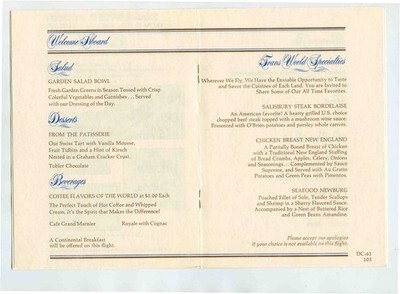 Welcome Aboard
Salad
GARDEN SALAD BOWL
Fresh Garden Greens in Season Tossed with Crisp
Colorful Vegetables and Garnishes . . . Served
with our Dressing of the Day.
Desserts
FROM THE PATISSERIE
Our Swiss Tart with Vanilla Mousse,
Fruit Tidbits and a Hint of Kirsch
Nested in a Graham Cracker Court
Tobler Chocolate
Beverages
COFFEE FLAVORS OF THE WORLD at $1.00 Each
The Perfect Touch of Hot Coffee and Whipped
Cream, It's the Spirit that Makes the Difference!
Cafe Grand Marnier Royale with Cognac
A Continental Breakfast
will be offered on this flight.
Trans World Specialties
Wherever We Fly, We Have the Enviable Opportunity to Taste
and Savor the Cuisines of Each Land. You are Invited to
Share Some of Our All Time Favorites.
SALISBURY STEAK BORDELAISE
An American favorite! A hearty grilled U.S. choice
chopped beef steak topped with a mushroom wine sauce.
Presented with O'Brien potatoes and parsley whole carrots.
CHICKEN BREAST NEW ENGLAND
A Partially Boned Breast of Chicken
with a Traditional New England Stuffing
of Bread Crumbs, Apples, Celery, Onions
and Seasonings . . . Complemented by Sauce
Supreme, and Served with Au Gratin
Potatoes and Green Peas with Pimentos.
SEAFOOD NEWBURG
Poached Fillet of Sole, Tender Scallops
and Shrimp in a Sherry Flavored Sauce.
Accompanied by a Nest of Buttered Rice
and Green Beans Amandine.
Please accept our apologies
if your choice is not available on this flight.